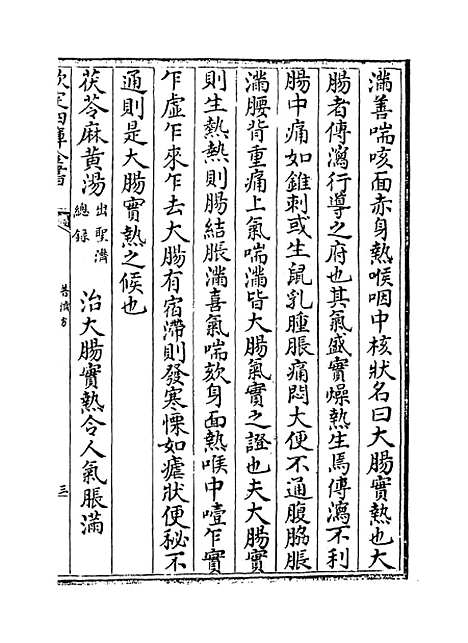 滿善喘咳面赤身熱喉咽中核狀名曰大腸實熱也大
腸者傳瀉行導之府也其氣盛實燥熱生焉傳瀉不利
腸中痛如錐刺或生鼠乳腫脹痛悶大便不通腹脇脹
滿腰背重痛上氣喘滿皆大腸氣實之證也夫大腸實
則生熱熱則腸結脹滿喜氣喘欬身面熱喉中噎乍實
乍虛乍來乍去大腸有宿滯則發寒慄如瘧狀便秘不
通則是大腸實熱之候也
茯苓麻黃湯出聖濟總錄 治大腸實熱令人氣脹滿
欽定四庫全書
普濟方
三